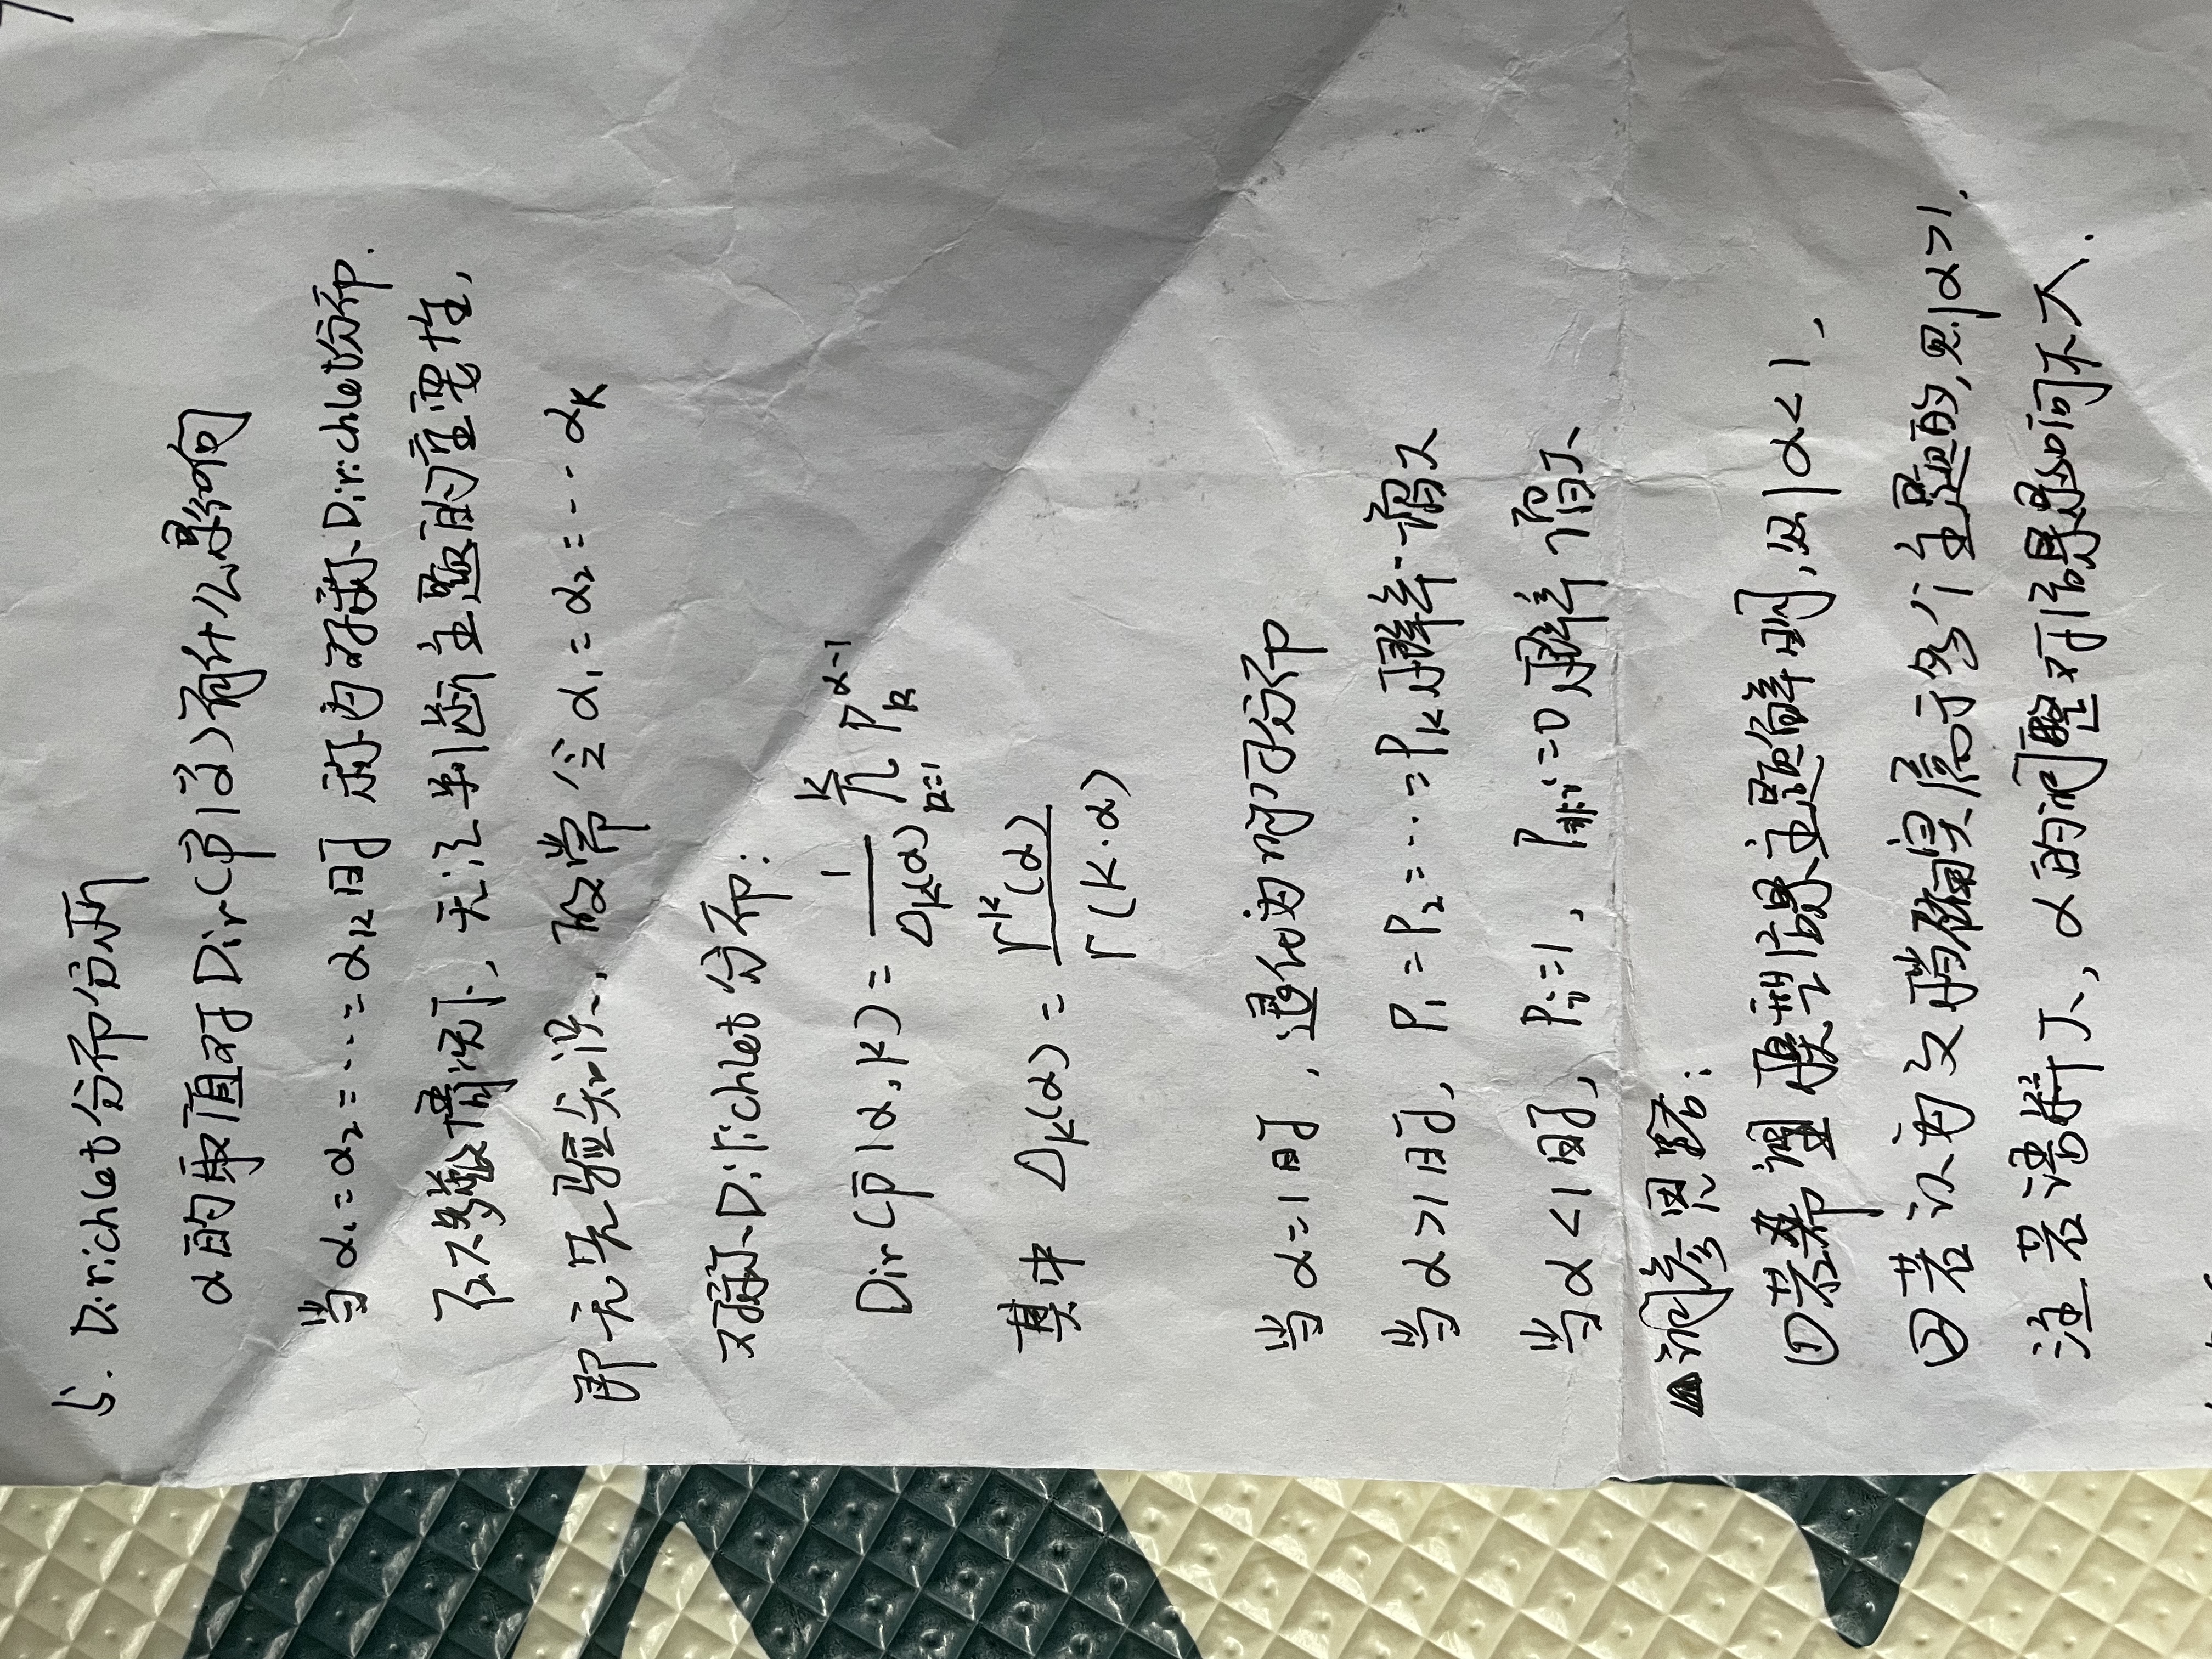 5. Dirichlet分布分析
α的取值对Dir(p⃗|α⃗)有什么影响
当 α₁=α₂=…=αₖ时 称为对称Dirichlet分布.
在大多数情况下, 无法判断主题的重要性,
即无先验知识、故常令 α₁=α₂=…αₖ
对称Dirichlet分布:
Dir(p⃗|α,K) = 1/Δₖ(α) ∏ₖ₌₁ᴷ pₖ^(α-1)
其中 Δₖ(α) = Γᴷ(α)/Γ(K·α)
当 α=1时, 退化为均匀分布
当 α>1时, P₁=P₂=…=Pₖ概率增大
当 α<1时, Pᵢ=1, P非ᵢ=0概率增大
▲调参思路:
①若希望模型结果主题鲜明,则α<1,
②若认为文档确实属于多个主题的,则α>1.
注:若语料大, α的调整对结果影响不大.